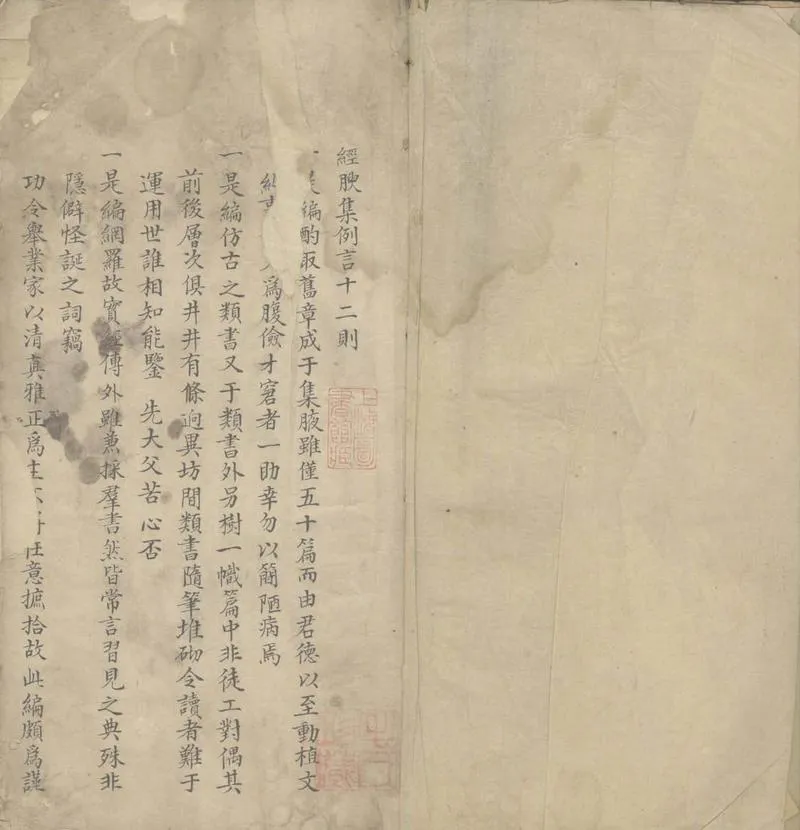 經腴集例言十二則
是編酌取舊章成于集腋雖僅五十篇而由君德以至動植文
爲腹儉才窘者一助幸勿以簡陋病焉
一是編仿古之類書又于類書外另樹一幟篇中非徒工對偶其
前後層次俱井井有條迥異坊間類書隨筆堆砌令讀者難于
運用世誰相知能鑒 先大父苦心否
一是編網羅故實經傳外雖兼採羣書然皆常言習見之典殊非
隱僻怪誕之詞竊
功令舉業家以清真雅正爲主 任意摭拾故此編頗爲謹
上海圖書館藏